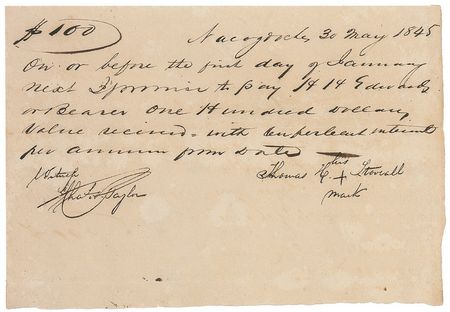 $100
Nacogdoches 30 May 1845
On or before the first day of January
next I promise to pay H H Edwards
or Bearer One Hundred Dollars,
Value received - with ten per cent interest
per annum from date
Witness
Chas. S. Taylor
his
Thomas C. + Stovall
mark